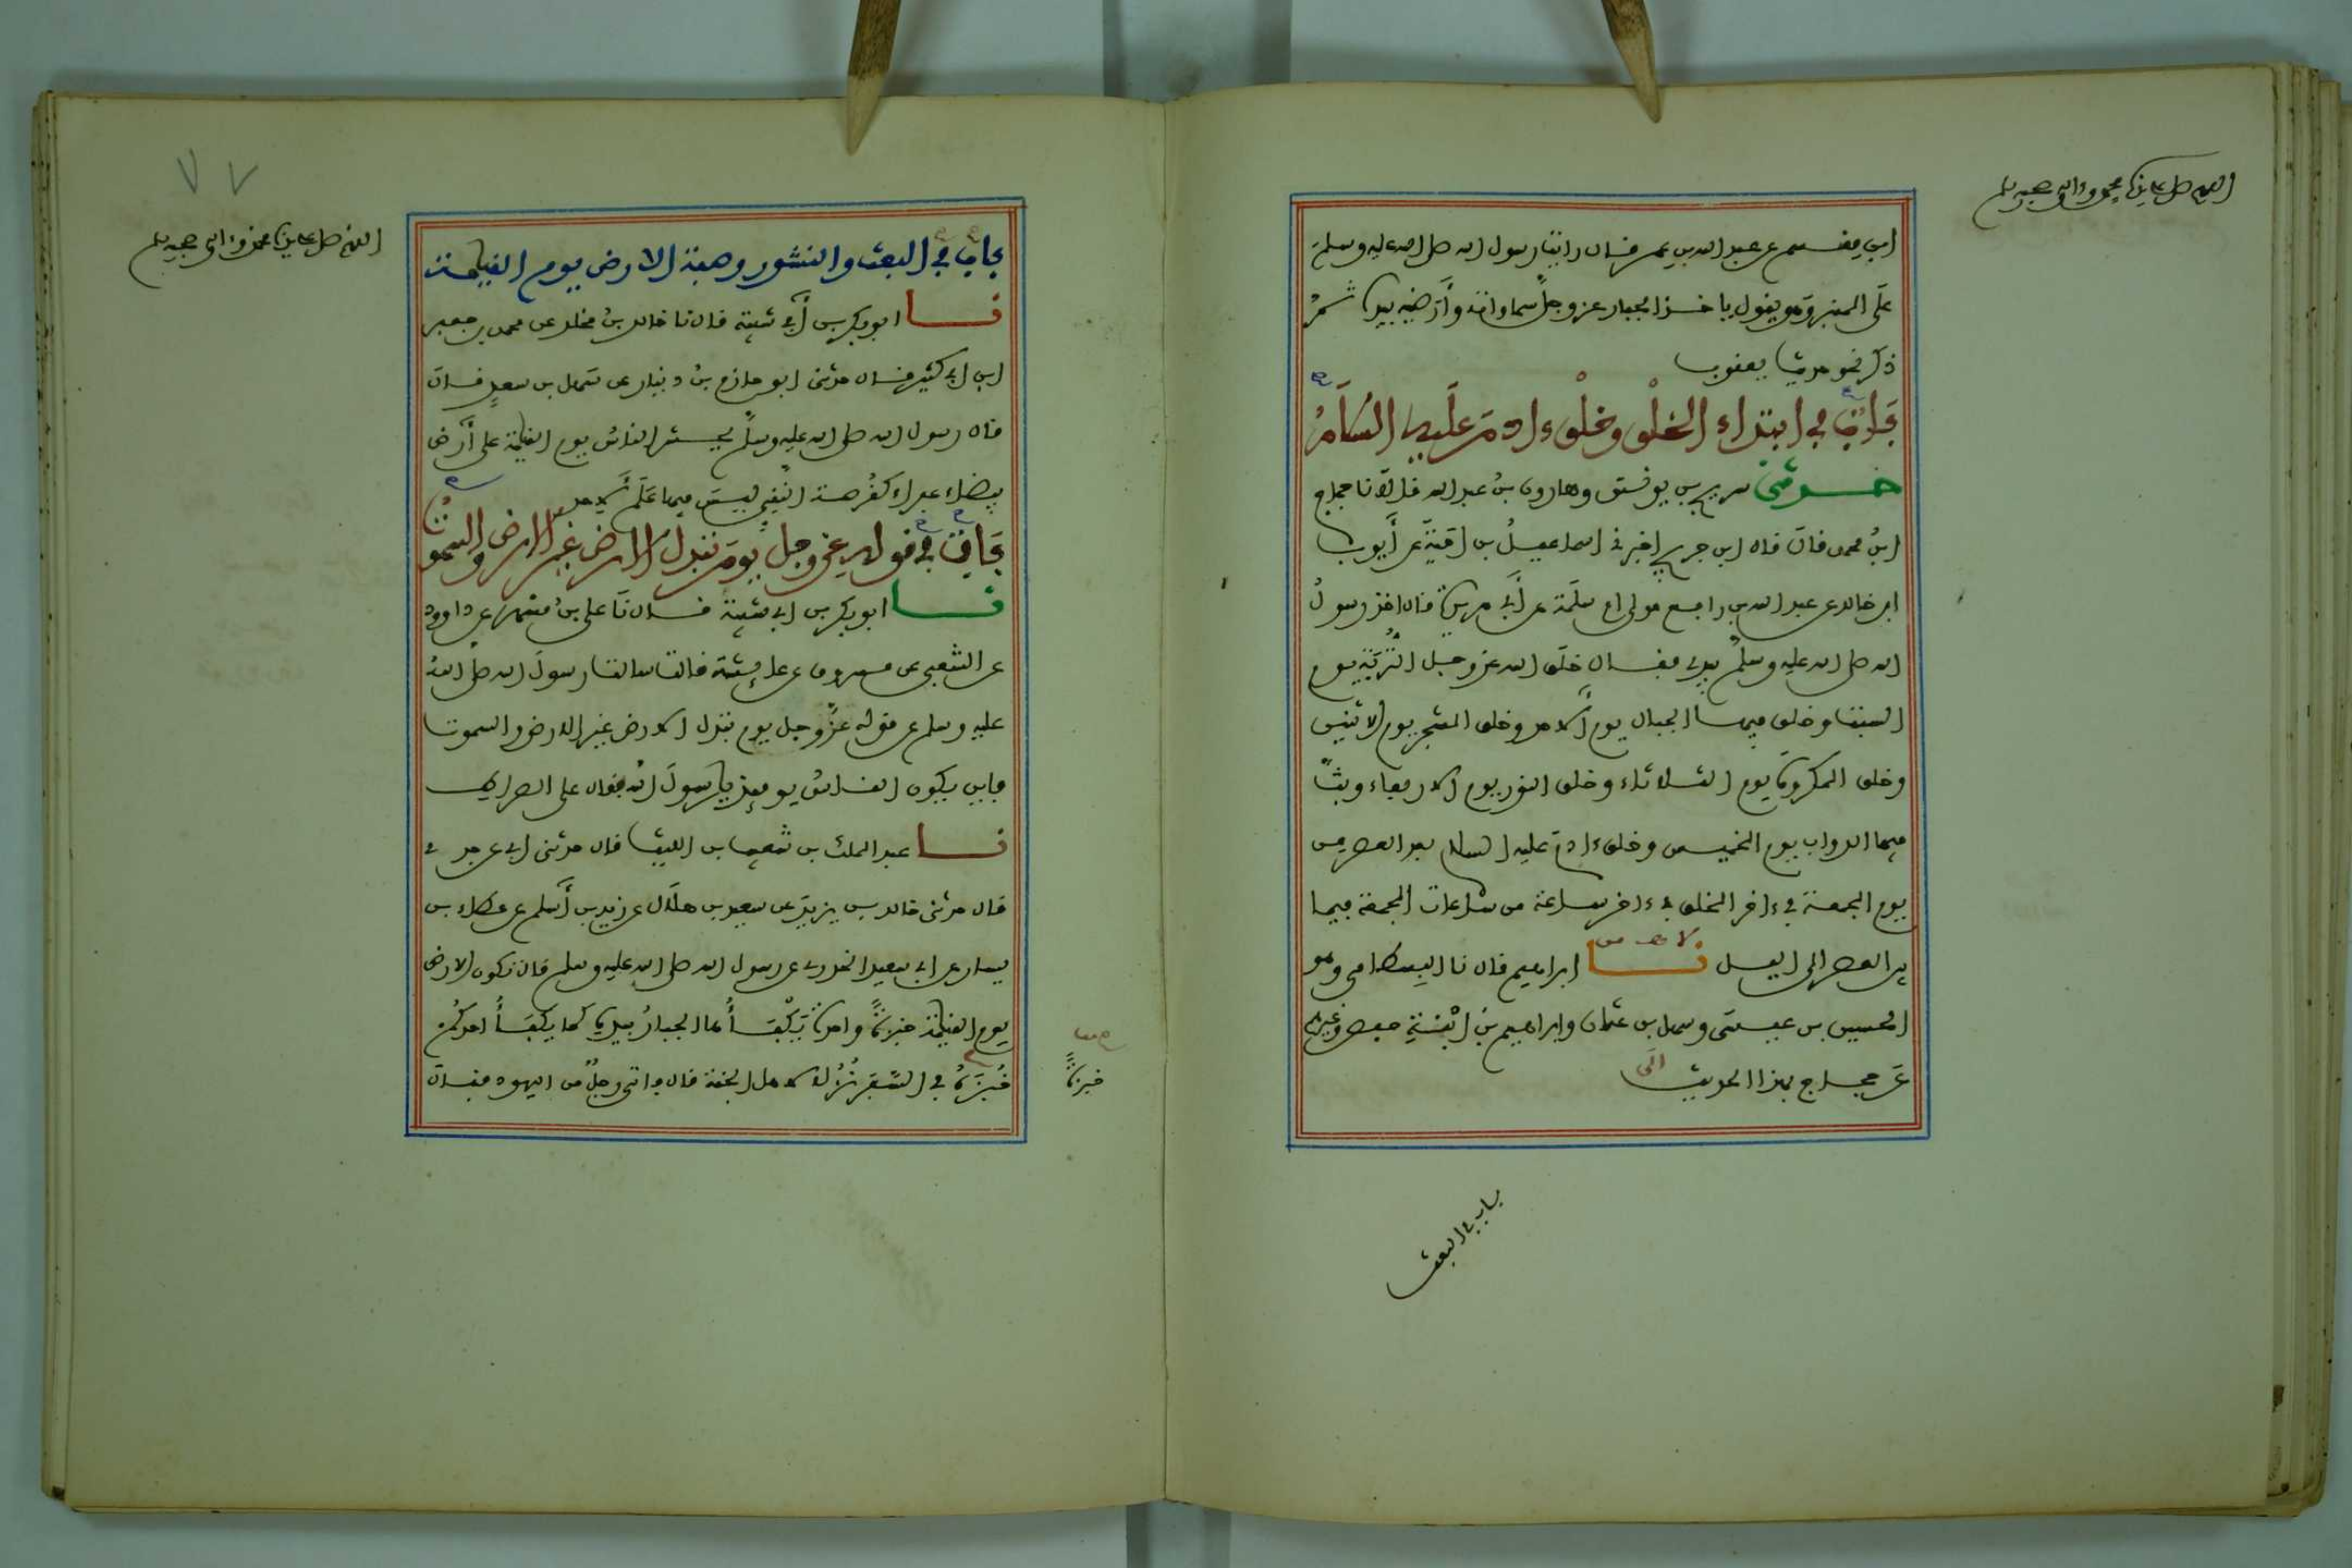 اللهم صل على سيدنا محمد وءاله وصحبه وسلم
ابن مقسم عن عبد الله بن عمر قال رايت رسول الله صلى الله عليه وسلم
على المنبر وهو يقول ياخذ الجبار عز وجل سماواته وأرضيه بيديه ثم
ذكر نحو حديث يعقوب
باب في ابتداء الخلق وخلق ءادم عليه السلام
حدثني سريج بن يونس وهارون بن عبد الله قالا نا حجاج
ابن محمد قال قال ابن جريج اخبرني اسماعيل بن امية عن أيوب
ابن خالد عن عبد الله بن رافع مولى ام سلمة عن أبي هريرة قال اخذ رسول
الله صلى الله عليه وسلم بيدي فقال خلق الله عز وجل التربة يوم
السبت وخلق فيها الجبال يوم الاحد وخلق الشجر يوم الاثنين
وخلق المكروه يوم الثلاثاء وخلق النور يوم الاربعاء وبث
فيها الدواب يوم الخميس وخلق ءادم عليه السلام بعد العصر من
يوم الجمعة في ءاخر الخلق في ءاخر ساعة من ساعات الجمعة فيما
بين العصر الى اليل نا ابراهيم قال نا البسطامي وهو
الحسين بن عيسى وسهل بن عثمان وابراهيم بن ابنة حفص وغيرهم
عن حجاج بهذا الحديث
الى
باب في البعث
٧٧
اللهم صل على سيدنا محمد وءاله وصحبه وسلم
باب في البعث والنشور وصفة الارض يوم القيامة
نا ابو بكر بن أبي شيبة قال نا خالد بن مخلد عن محمد بن جعفر
ابن ابي كثير قال حدثني ابو حازم بن دينار عن سهل بن سعد قال
قال رسول الله صلى الله عليه وسلم يحشر الناس يوم القيامة على أرض
بيضاء عفراء كقرصة النقي ليس فيها علم لاحد
باب في قوله عز وجل يوم تبدل الارض غير الارض والسموت
نا ابو بكر بن ابي شيبة قال نا علي بن مسهر عن داوود
عن الشعبي عن مسروق عن عائشة قالت سالت رسول الله صلى الله
عليه وسلم عن قوله عز وجل يوم تبدل الارض غير الارض والسموت
فاين يكون الناس يومئذ يا رسول الله فقال على الصراط
نا عبد الملك بن شعيب بن الليث قال حدثني ابي عن جدي
قال حدثني خالد بن يزيد عن سعيد بن هلال عن زيد بن أسلم عن عطاء بن
يسار عن ابي سعيد الخدري عن رسول الله صلى الله عليه وسلم قال تكون الارض
يوم القيامة خبزة واحدة يكفأها الجبار بيده كما يكفأ احدكم
خبزته في السفر نزلا لاهل الجنة قال فاتى رجل من اليهود فقال
خبزته